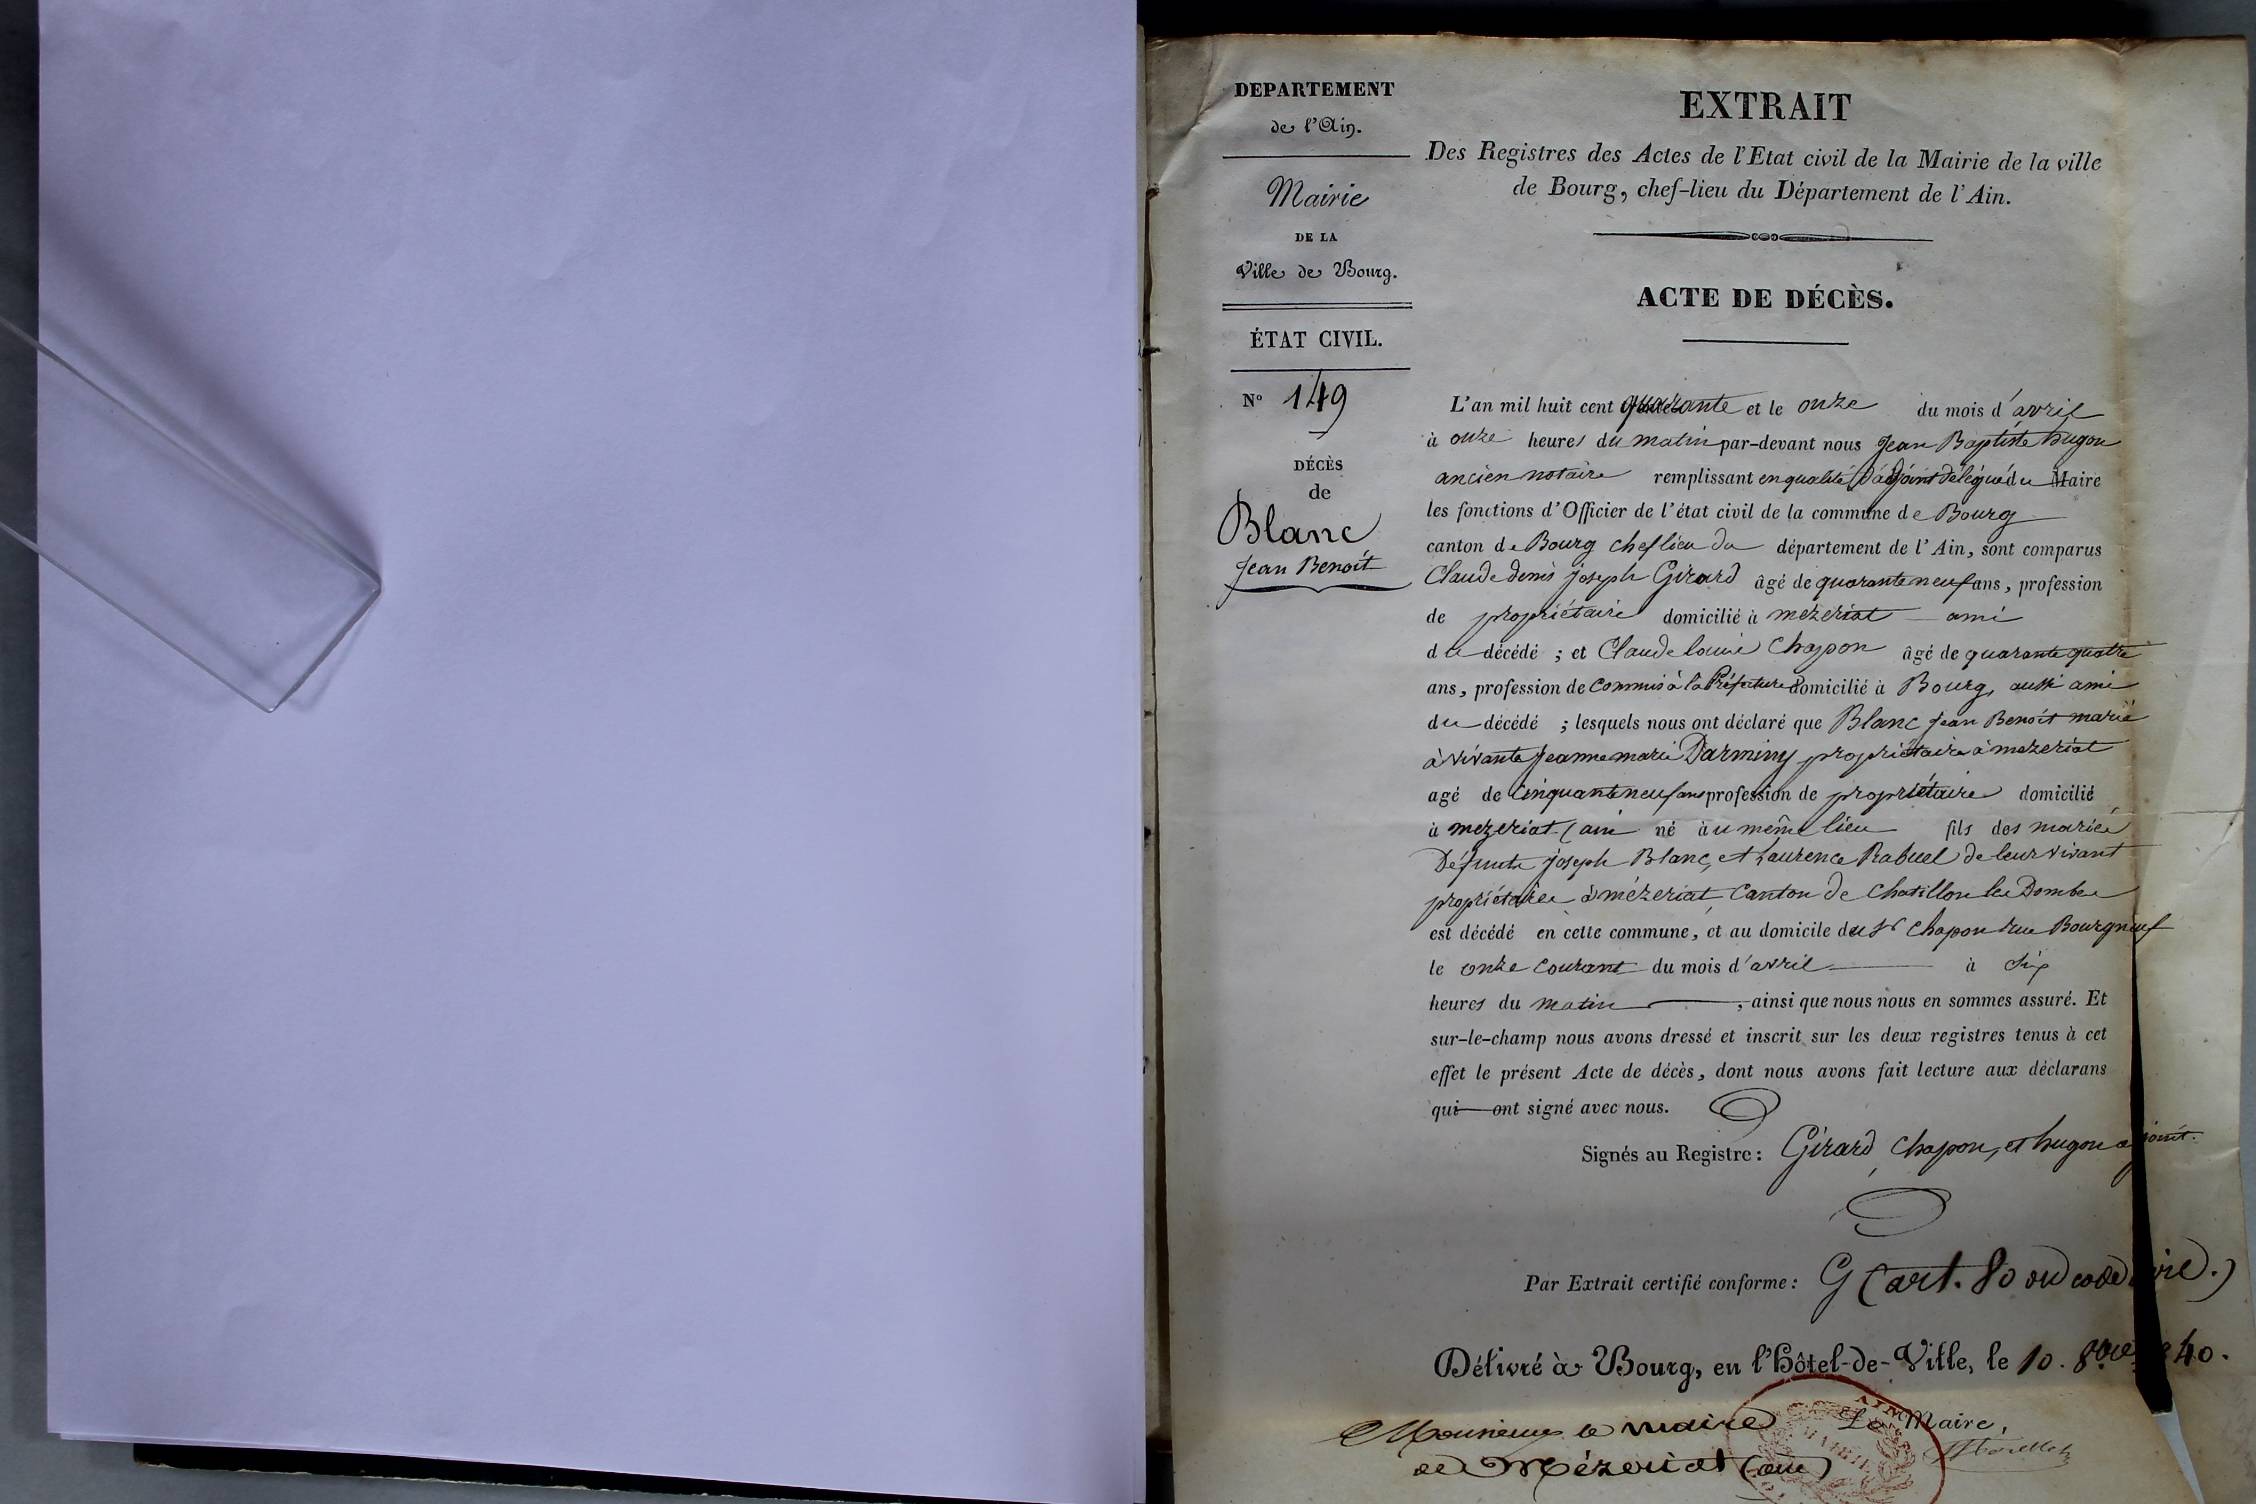 DEPARTEMENT
de l'Ain.
Mairie
DE LA
Ville de Bourg.
ÉTAT CIVIL.
N° 149
DÉCÈS
de
Blanc
Jean Benoit
EXTRAIT
Des Registres des Actes de l'Etat civil de la Mairie de la ville
de Bourg, chef-lieu du Département de l'Ain.
ACTE DE DÉCÈS.
L'an mil huit cent quarante et le onze du mois d'avril
à onze heures du matin par-devant nous Jean Baptiste hugon
ancien notaire remplissant en qualité d'adjoint délégué du Maire
les fonctions d'Officier de l'état civil de la commune de Bourg
canton de Bourg chef lieu du département de l'Ain, sont comparus
Claude denis joseph Girard âgé de quarante neuf ans, profession
de propriétaire domicilié à mezeriat ami
du décédé ; et Claude louis Chapon âgé de quarante quatre
ans, profession de Commis à la Préfecture domicilié à Bourg, aussi ami
du décédé ; lesquels nous ont déclaré que Blanc jean Benoit marié
à vivante Jeanne marie Darminy propriétaire à mezeriat
agé de Cinquante neuf ans profession de propriétaire domicilié
à mezeriat (ain né au même lieu fils des mariés
Défunts joseph Blanc, et Laurence Rabuel de leur vivant
propriétaires à mézeriat, Canton de Chatillon les Dombes
est décédé en cette commune, et au domicile du Sr Chapon rue Bourgneuf
le onze Courant du mois d'avril à six
heures du matin , ainsi que nous nous en sommes assuré. Et
sur-le-champ nous avons dressé et inscrit sur les deux registres tenus à cet
effet le présent Acte de décès, dont nous avons fait lecture aux déclarans
qui ont signé avec nous.
Signés au Registre : Girard, Chapon, et hugon adjoint.
Par Extrait certifié conforme : G (art. 80 du code civil.)
Délivré à Bourg, en l'Hôtel-de-Ville, le 10. 8bre 40.
Le Maire,
Monsieur le maire
de Mézeriat (ain)
AIN
MAIRIE